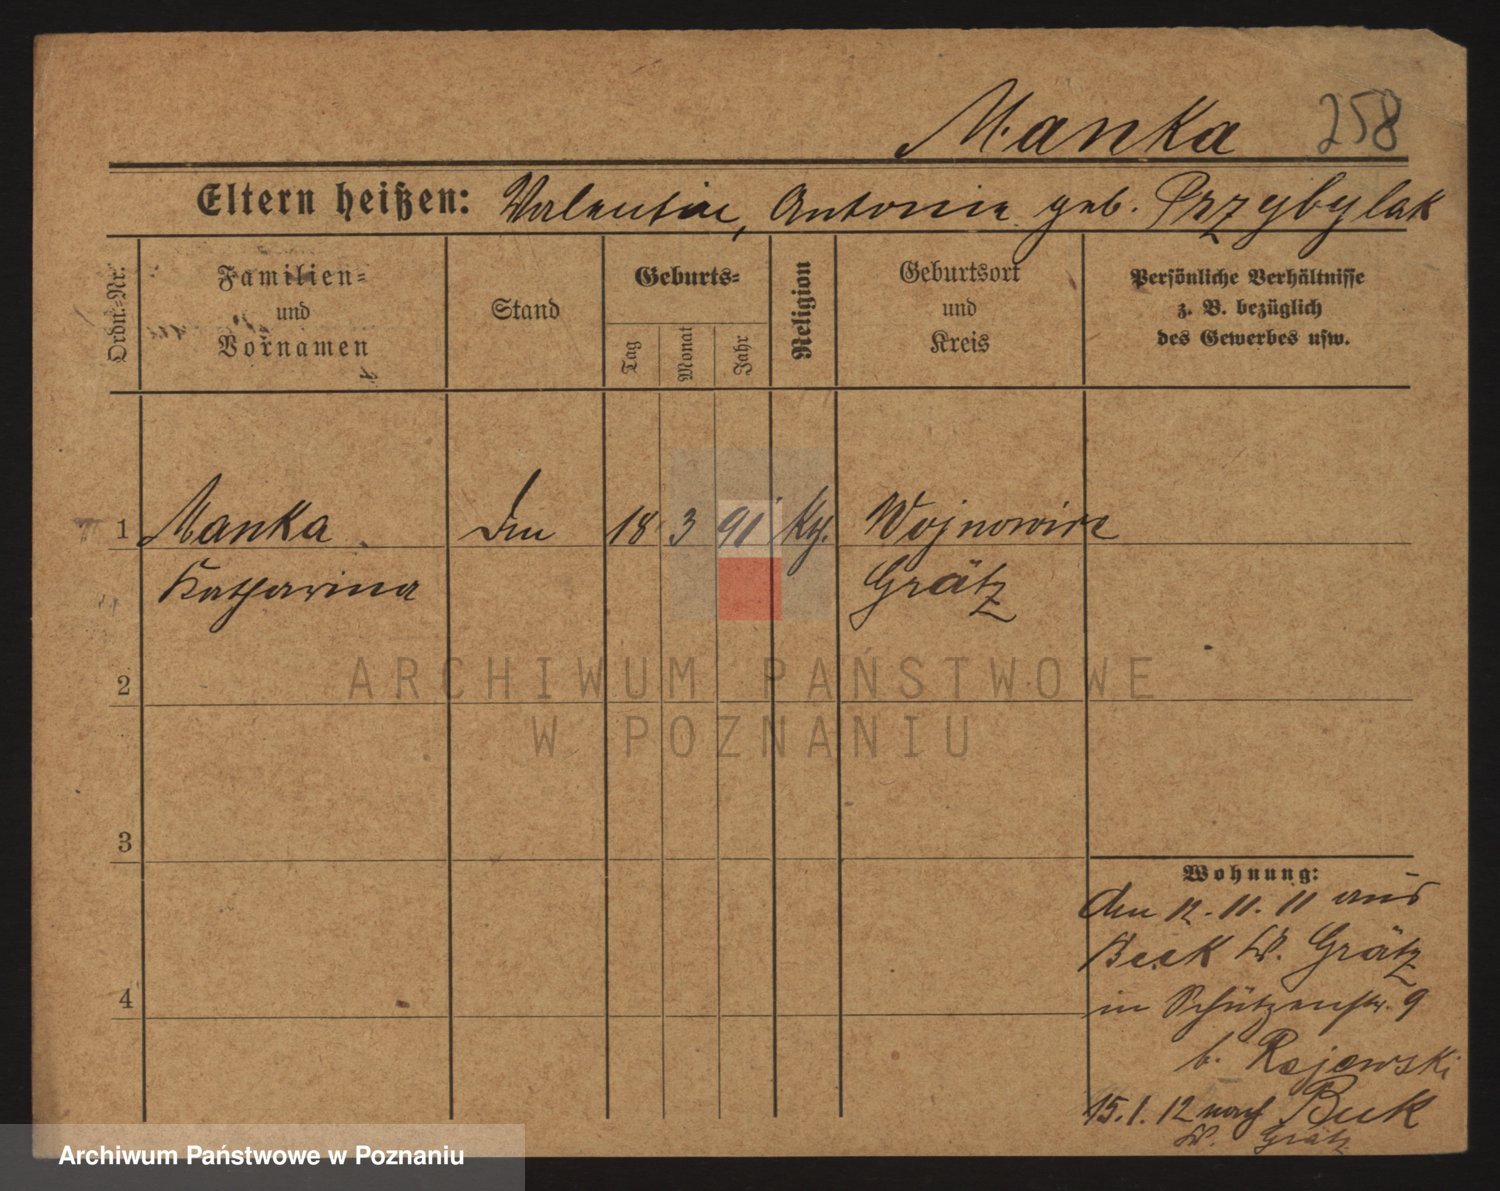 Manka 258
Eltern heißen: Valentin, Antonie geb. Przybylak
Ordn.-Nr.
Familien- und Vornamen
Stand
Geburts-
Tag
Monat
Jahr
Religion
Geburtsort und Kreis
Persönliche Verhältnisse
z. B. bezüglich
des Gewerbes usw.
1 Manka 18 3 91 Wojnowice
Katharina Grätz
2
3
4
Wohnung:
den 12. 11. 11 aus
Buk Kr. Grätz
in Schützenstr. 9
b. Rajewski
15. 1. 12 nach Buk
Kr. Grätz
ARCHIWUM PAŃSTWOWE
W POZNANIU
Archiwum Państwowe w Poznaniu